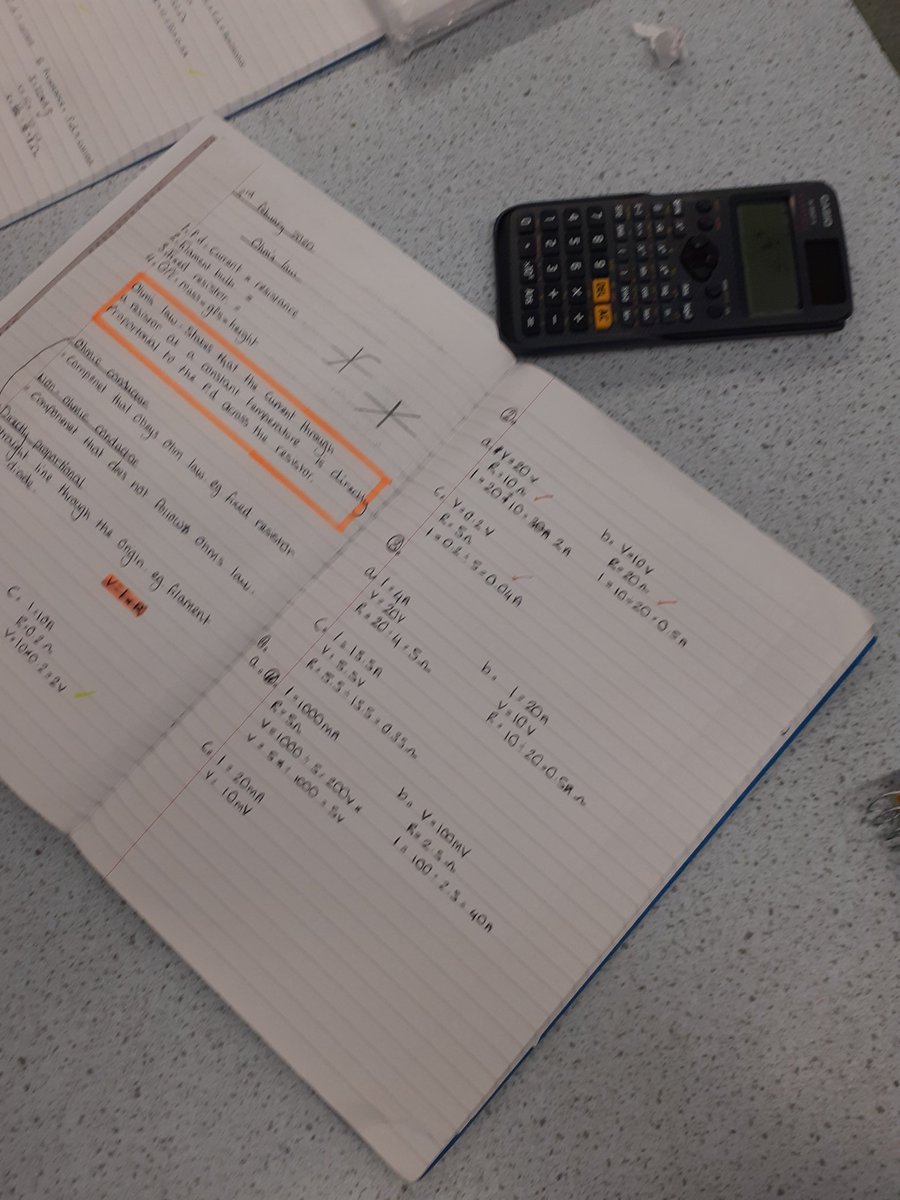 Ohm's law
1. P.d. Current = resistance
2. filament bulb =
3. fixed resistor =
4. GPE = mass × gfs × height
Ohms law - States that the current through
a resistor at a constant temperature is directly
proportional to the P.d across the resistor.
Ohmic conductor
- component that obeys ohm law. eg fixed resistor
Non-ohmic conductor
component that does not follows ohms law.
Directly proportional
straight line through the origin. eg filament
diode.
V = I × R
C. I = 10A
R = 0.2Ω
V = 10 × 0.2 = 2V
②.
a. V = 20V
R = 10Ω
I = 20 ÷ 10 = 2A
b. V = 10V
R = 20Ω
I = 10 ÷ 20 = 0.5A
C. V = 0.2V
R = 5Ω
I = 0.2 ÷ 5 = 0.04A
③.
a. I = 4A
V = 20V
R = 20 ÷ 4 = 5Ω
b. I = 20A
V = 10V
R = 10 ÷ 20 = 0.5Ω
C. I = 15.5A
V = 5.5V
R = 5.5 ÷ 15.5 = 0.35Ω
a. I = 1000mA
R = 5Ω
V = 1000 ÷ 5 = 200V
V = 5 × 1000 = 5V
b. V = 100mV
R = 2.5Ω
I = 100 ÷ 2.5 = 40A
C. I = 20mA
V = 10mV
CASIO
7 8 9 DEL AC
4 5 6 × ÷
1 2 3 + −
0 . ×10ˣ Ans =